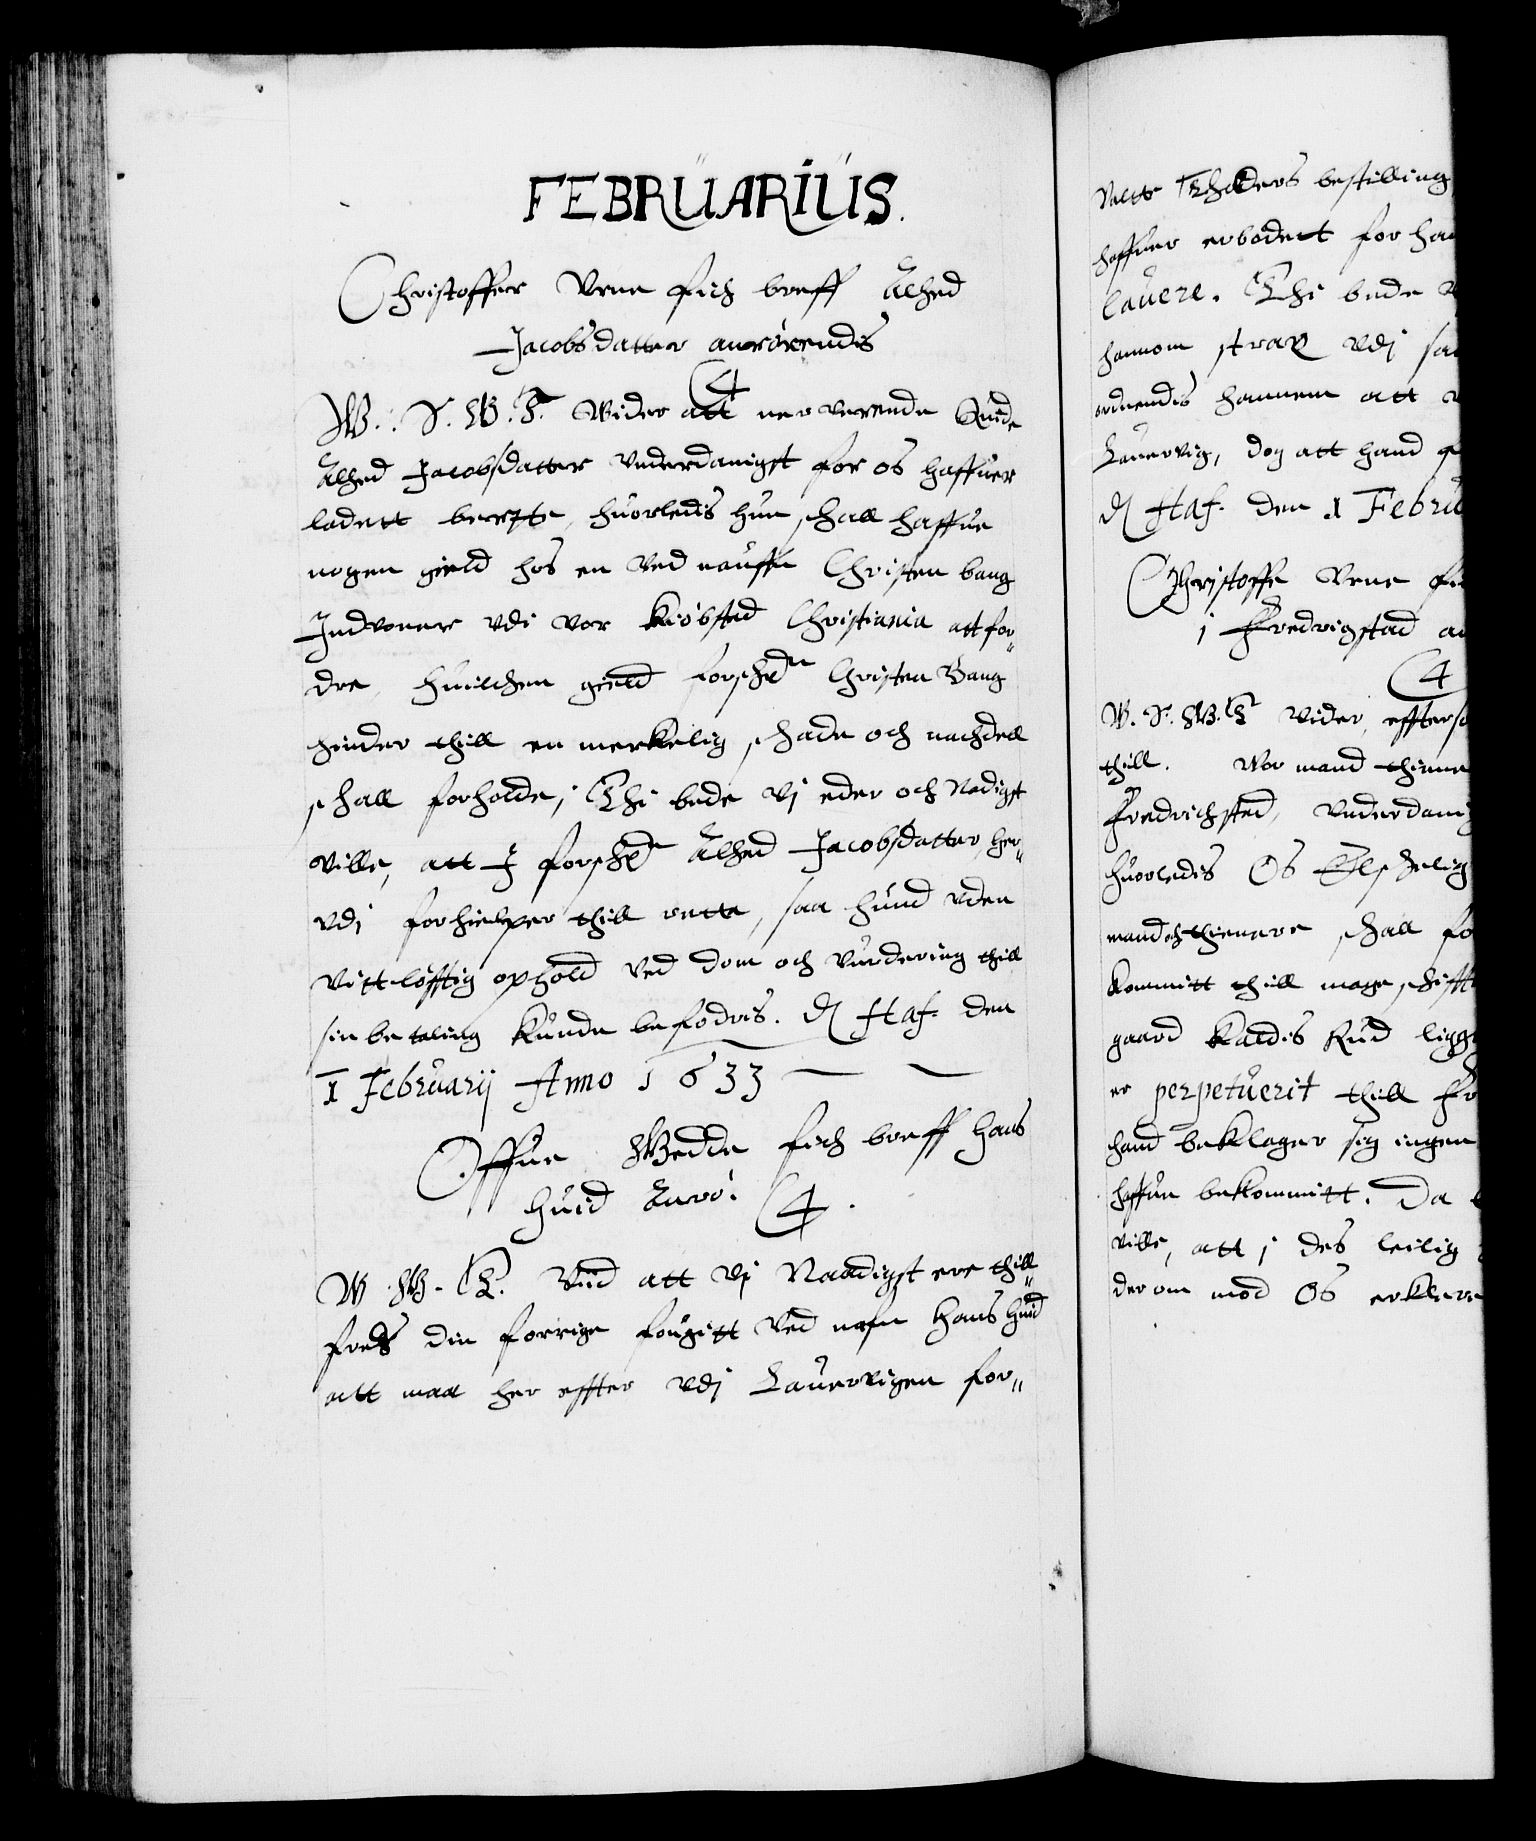 FEBRUARIUS.
Christoffer Vrne fich breff Alhed
Jacobsdatter anrörendis
4
W. S. G. T. Wider att nerverende Quide
Alhed Jacobsdatter vnderdanigst for os haffuer
ladett berette, huorledis hun schall haffue
nogen gield hos en ved nauffn Christen bang
Indvoner vdi vor kiöbsted Christiania att for„
dre, huilchen gield forschrne Christen Bang
hinder thill en merkelig schade och nachdell
schall forholde, Thi bede vj eder och Nadigst
ville, att I forschne Alhed Jacobsdatter, her„
vdj forhielper thill rette, saa hund vden
vittlöfftig ophold ved dom och vurdering thill
sin betaling kunde befodris. Haf. den
1 Februarij Anno 1633
Offue Gedde fich breff Hans
Huid Anrö: 4.
W. G. T. Viid att vj Naadigst ere thill„
freds din forrige fougitt ved nafn Hans Huid
att maa her effter vdj Lauervigen for„
valte Tholders bestilling
haffuer erbödett for han
lauere. Thi bede
hannom strax vdj
ordnendis hannem att
Lauervig, dog att hand
Haf. den 1 Febru
Christoffe Vrne fi
i Fredrigstad an
4
W. S. G. T. Vider, effters
thill. Vor mand thienne
Fredrichsted, vnderdanig
huorledis Os Elschelig
mand och thienere schall fo
kommitt thill mageschifft
gaard kaldis Rud ligg
er perpetuerit thill Fr
hand beklager sig ingen
haffue bekommitt. Da
ville, att i des leilig
der om mod Os erklere